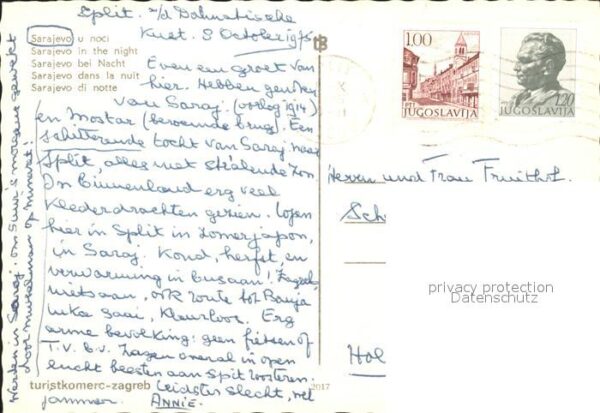 Split. a/d Dalmatische
Kust. 8 October 1975
Sarajevo u noci
Sarajevo in the night
Sarajevo bei Nacht
Sarajevo dans la nuit
Sarajevo di notte
Even een groet van
hier. Hebben genoten
van Saraj. (oorlog 1914)
en Mostar (beroemde brug). Een
schitterende tocht van Saraj naar
Split, alles met stralende zon
In Binnenland erg veel
klederdrachten gezien. Lopen
hier in Split in zomerjapon,
in Saraj. Koud, herfst en
verwarming in bus aan! Zagreb
niets aan, ook route tot Banja
luka saai, kleurloos. Erg
arme bevolking: geen fietsen of
T.V. b.v. Zagen overal in open
lucht beesten aan spit roosteren.
Leidster slecht, wel
jammer. ANNIE.
Werden in Saraj. om 5 uur 's morgens gewekt
door muselman op minaret!
turistkomerc-zagreb
2017
1.00
PTT
JUGOSLAVIJA
1.20
JUGOSLAVIJA
Herrn und Frau Fruithof.
Sch
Hol
privacy protection
Datenschutz